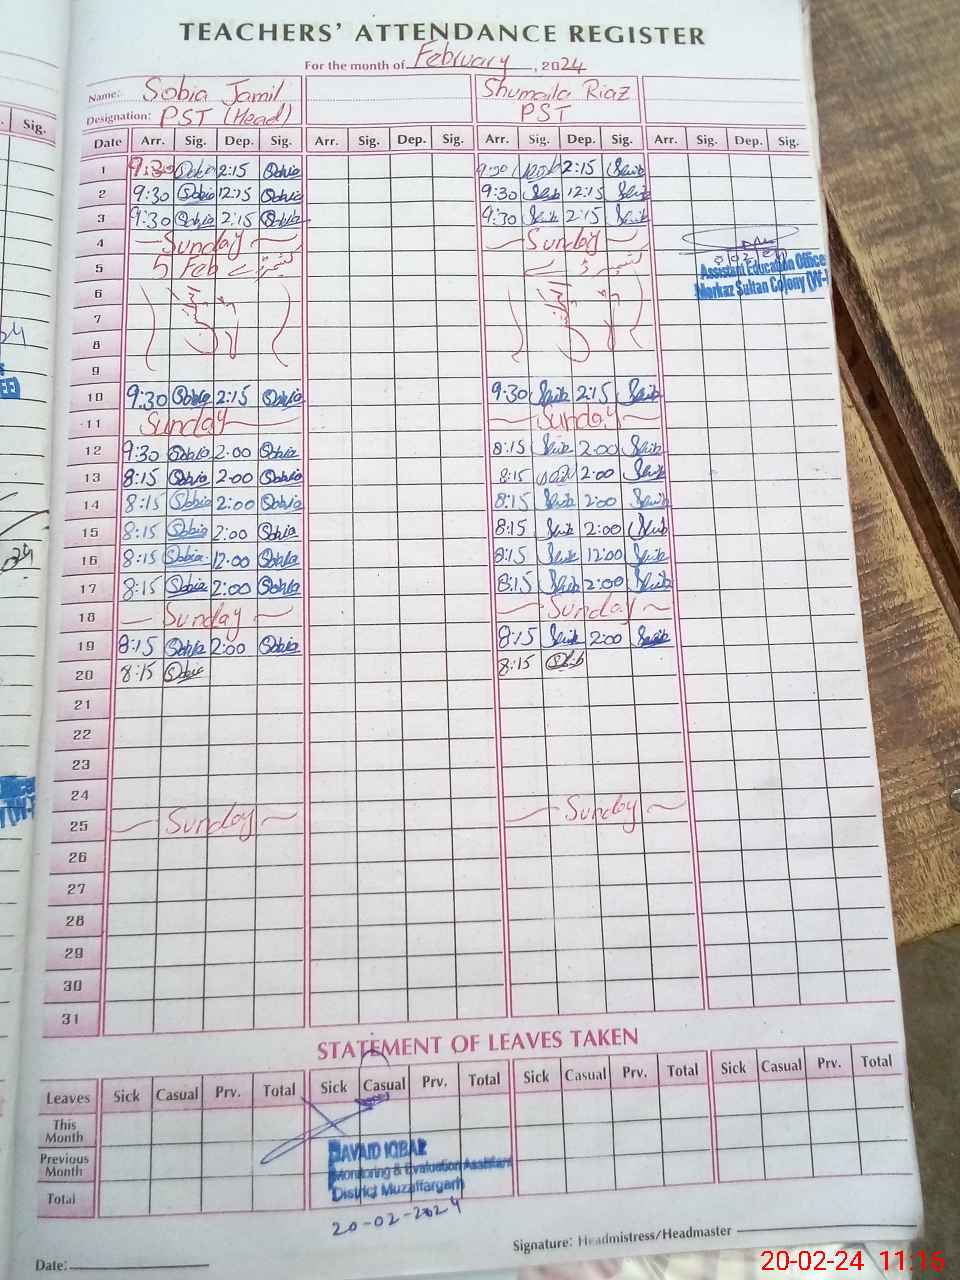 TEACHERS' ATTENDANCE REGISTER
For the month of February, 2024
Name: Sobia Jamil Shumaila Riaz
Designation: PST (Head) PST
Date Arr. Sig. Dep. Sig. Arr. Sig. Dep. Sig. Arr. Sig. Dep. Sig. Arr. Sig. Dep. Sig.
1 9:30 Sobia 2:15 Sobia 9:30 2:15
2 9:30 Sobia 12:15 Sobia 9:30 12:15
3 9:30 Sobia 2:15 Sobia 9:30 2:15
4 Sunday Sunday
5 5 Feb
Assistant Education Office
Markaz Sultan Colony (W-
6
7
8
9
10 9:30 Sobia 2:15 Sobia 9:30 2:15
11 Sunday Sunday
12 9:30 Sobia 2:00 Sobia 8:15 2:00
13 8:15 Sobia 2:00 Sobia 8:15 2:00
14 8:15 Sobia 2:00 Sobia 8:15 2:00
15 8:15 Sobia 2:00 Sobia 8:15 2:00
16 8:15 Sobia 12:00 Sobia 8:15 12:00
17 8:15 Sobia 2:00 Sobia 8:15 2:00
18 Sunday Sunday
19 8:15 Sobia 2:00 Sobia 8:15 2:00
20 8:15 Sobia 8:15
21
22
23
24
25 Sunday Sunday
26
27
28
29
30
31
STATEMENT OF LEAVES TAKEN
Leaves Sick Casual Prv. Total Sick Casual Prv. Total Sick Casual Prv. Total Sick Casual Prv. Total
This Month
Previous Month
Total
JAVAID IQBAL
Monitoring & Evaluation Assistant
District Muzaffargarh
20-02-2024
Signature: Headmistress/Headmaster
Date:
20-02-24 11:16
Sig.